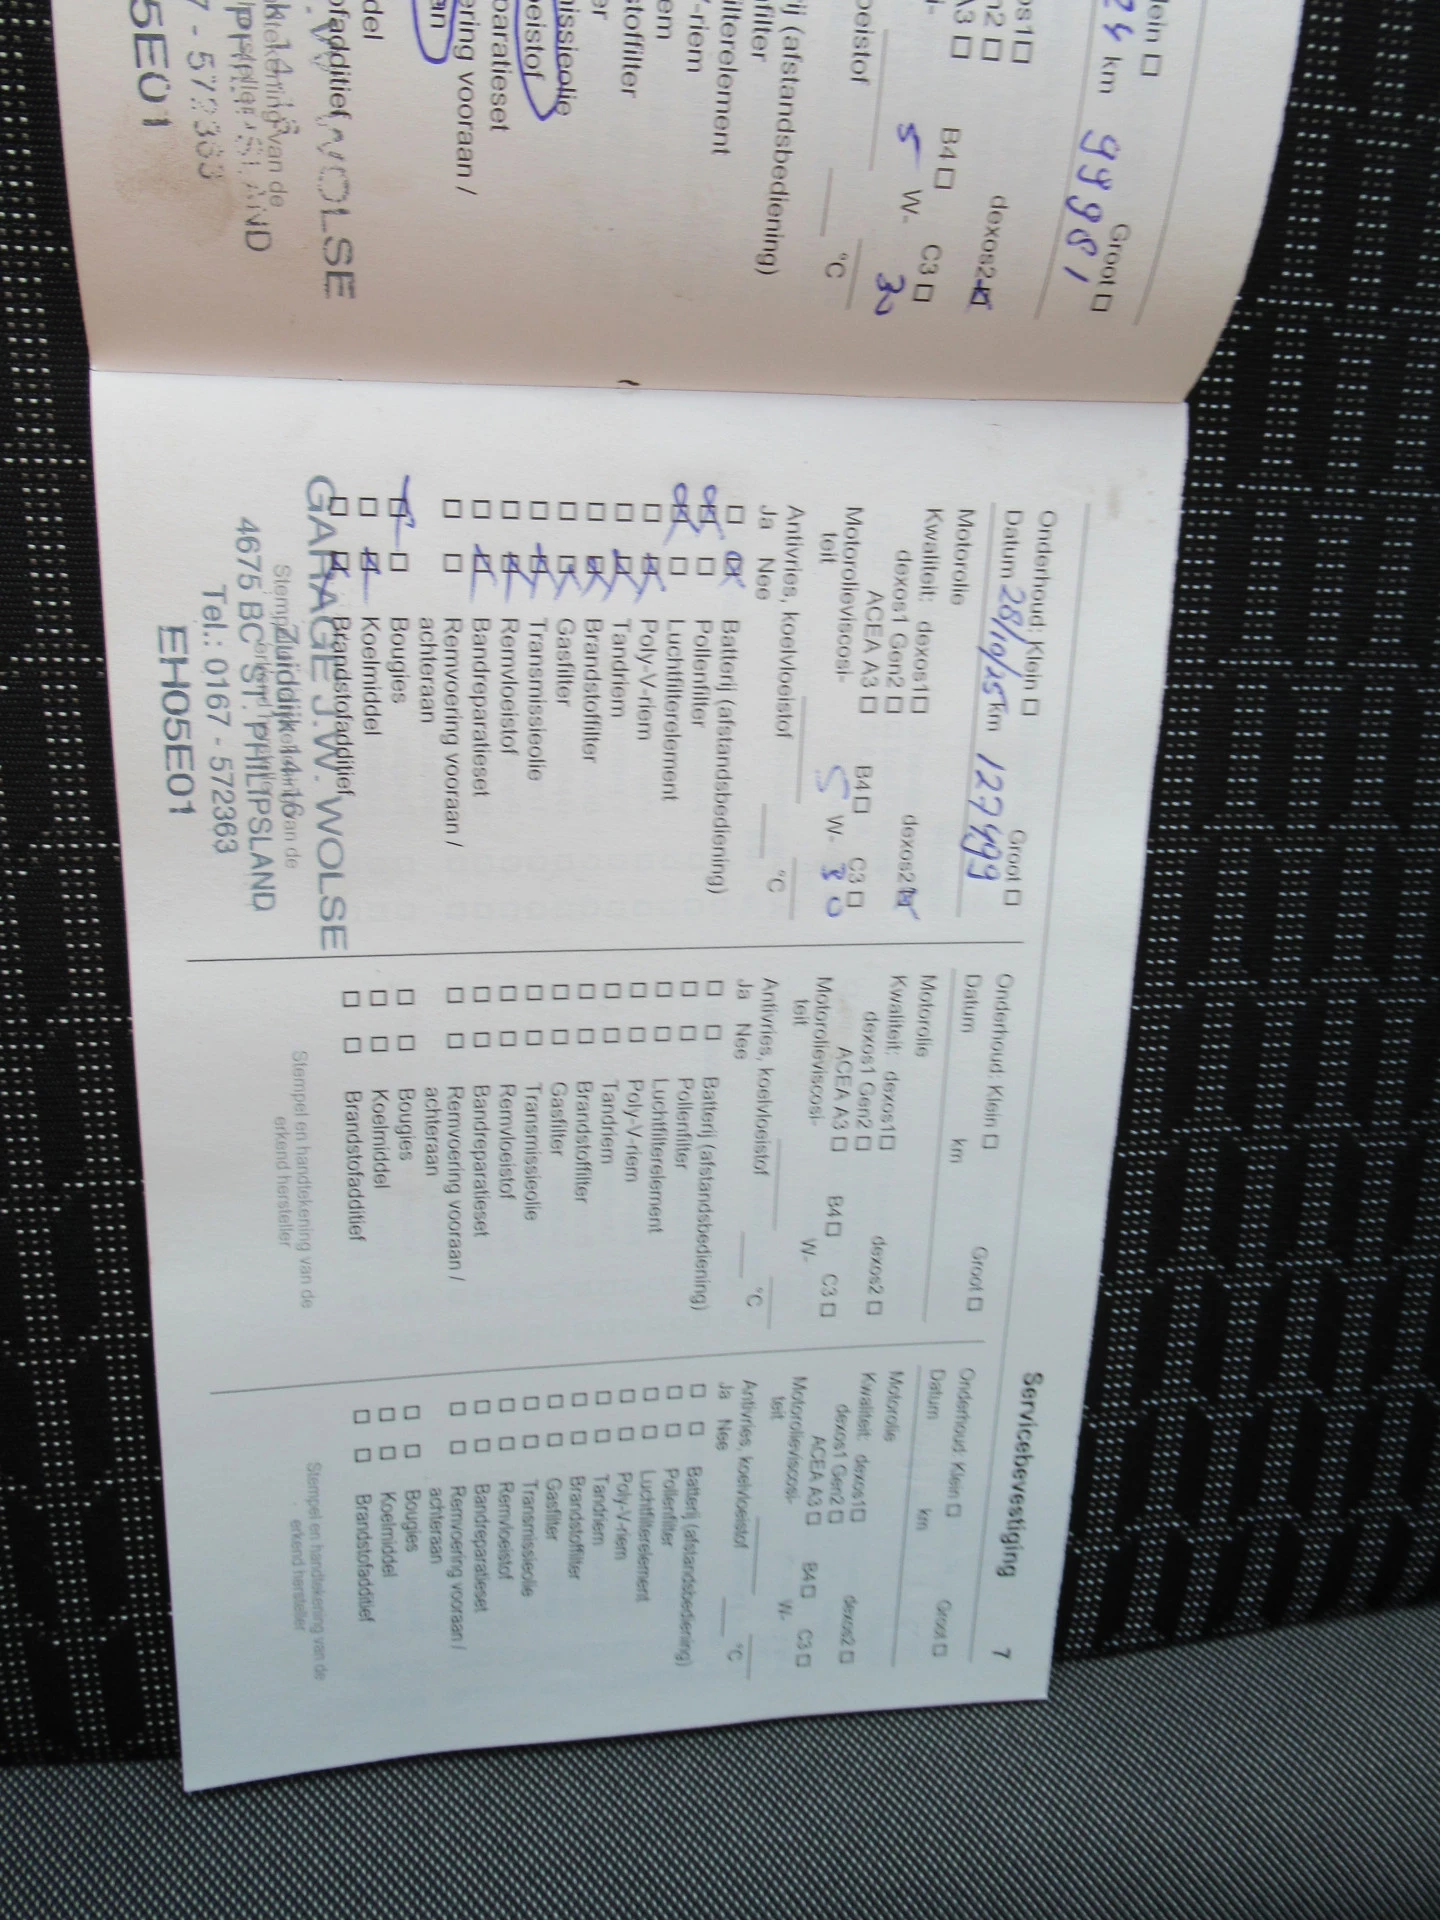 lein ☐
24 km 99981
Groot ☐
os1☐
n2 ☐ dexos2 ☒
A3 ☐ B4 ☐ C3 ☐
i- 5 W- 30
oeistof
°C
ij (afstandsbediening)
filter
ilterelement
/-riem
em
toffilter
er
issieolie
eistof
paratieset
ering vooraan /
an
del
ofadditief
WOLSE
5E01
Servicebevestiging 7
Onderhoud: Klein ☐ Groot ☐
Datum 28/10/25 km 127499
Motorolie
Kwaliteit: dexos1☐
dexos1 Gen2 ☐ dexos2 ☒
ACEA A3 ☐ B4 ☐ C3 ☐
Motorolieviscosi-
teit 5 W- 30
Antivries, koelvloeistof °C
Ja Nee
☐ ☒ Batterij (afstandsbediening)
☒ ☐ Pollenfilter
☒ ☐ Luchtfilterelement
☐ ☒ Poly-V-riem
☐ ☒ Tandriem
☐ ☒ Brandstoffilter
☐ ☒ Gasfilter
☐ ☒ Transmissieolie
☐ ☒ Remvloeistof
☐ ☒ Bandreparatieset
☐ ☐ Remvoering vooraan /
achteraan
☒ ☐ Bougies
☐ ☒ Koelmiddel
☐ ☒ Brandstofadditief
GARAGE J.W. WOLSE
Zuiddijk 14-16
4675 BC ST. PHILIPSLAND
Tel.: 0167 - 572363
EH05E01
Onderhoud: Klein ☐ Groot ☐
Datum km
Motorolie
Kwaliteit: dexos1☐
dexos1 Gen2 ☐ dexos2 ☐
ACEA A3 ☐ B4 ☐ C3 ☐
Motorolieviscosi-
teit W-
Antivries, koelvloeistof °C
Ja Nee
☐ ☐ Batterij (afstandsbediening)
☐ ☐ Pollenfilter
☐ ☐ Luchtfilterelement
☐ ☐ Poly-V-riem
☐ ☐ Tandriem
☐ ☐ Brandstoffilter
☐ ☐ Gasfilter
☐ ☐ Transmissieolie
☐ ☐ Remvloeistof
☐ ☐ Bandreparatieset
☐ ☐ Remvoering vooraan /
achteraan
☐ ☐ Bougies
☐ ☐ Koelmiddel
☐ ☐ Brandstofadditief
Stempel en handtekening van de
erkend hersteller
Onderhoud: Klein ☐ Groot ☐
Datum km
Motorolie
Kwaliteit: dexos1☐
dexos1 Gen2 ☐ dexos2 ☐
ACEA A3 ☐ B4 ☐ C3 ☐
Motorolieviscosi-
teit W-
Antivries, koelvloeistof °C
Ja Nee
☐ ☐ Batterij (afstandsbediening)
☐ ☐ Pollenfilter
☐ ☐ Luchtfilterelement
☐ ☐ Poly-V-riem
☐ ☐ Tandriem
☐ ☐ Brandstoffilter
☐ ☐ Gasfilter
☐ ☐ Transmissieolie
☐ ☐ Remvloeistof
☐ ☐ Bandreparatieset
☐ ☐ Remvoering vooraan /
achteraan
☐ ☐ Bougies
☐ ☐ Koelmiddel
☐ ☐ Brandstofadditief
Stempel en handtekening van de
erkend hersteller